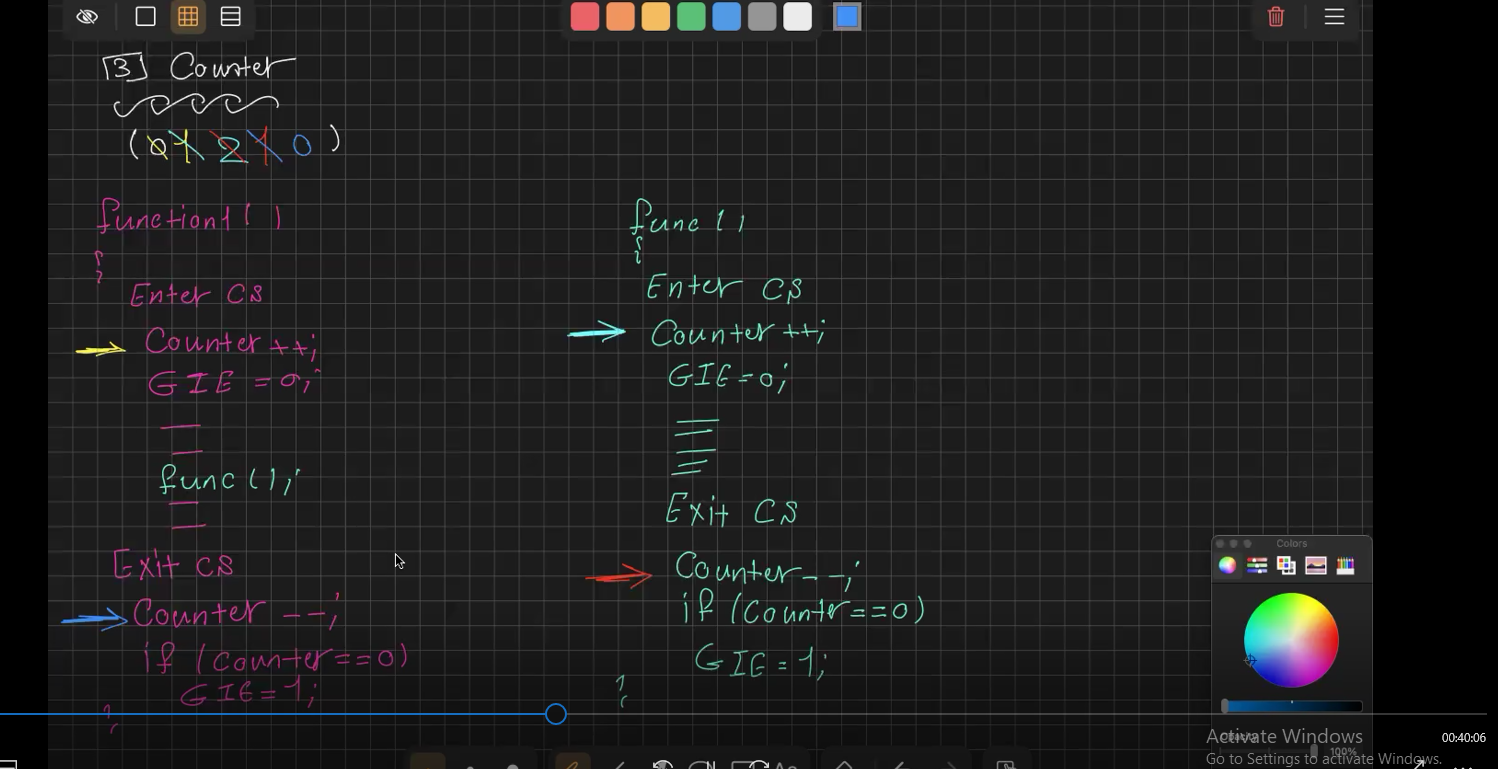 [3] Counter
(0 1 2 1 0)
function1( )
{
Enter CS
Counter ++;
GIE = 0;
func();
Exit CS
Counter --;
if (Counter==0)
GIE=1;
}
func()
{
Enter CS
Counter ++;
GIE=0;
Exit CS
Counter --;
if (Counter==0)
GIE=1;
}
Colors
Opacity
100%
Activate Windows
Go to Settings to activate Windows.
00:40:06